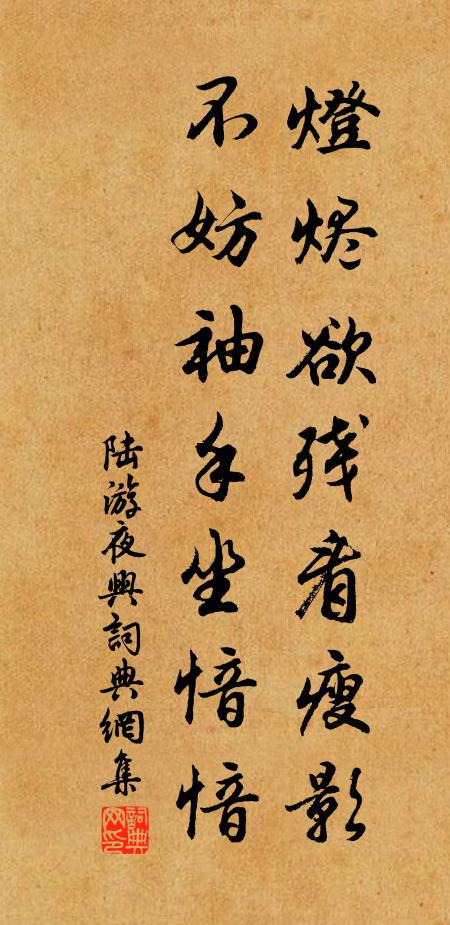 燈烬欲残看瘦影
不妨袖手坐愔愔
陆游夜興詞典網集
詞典网印